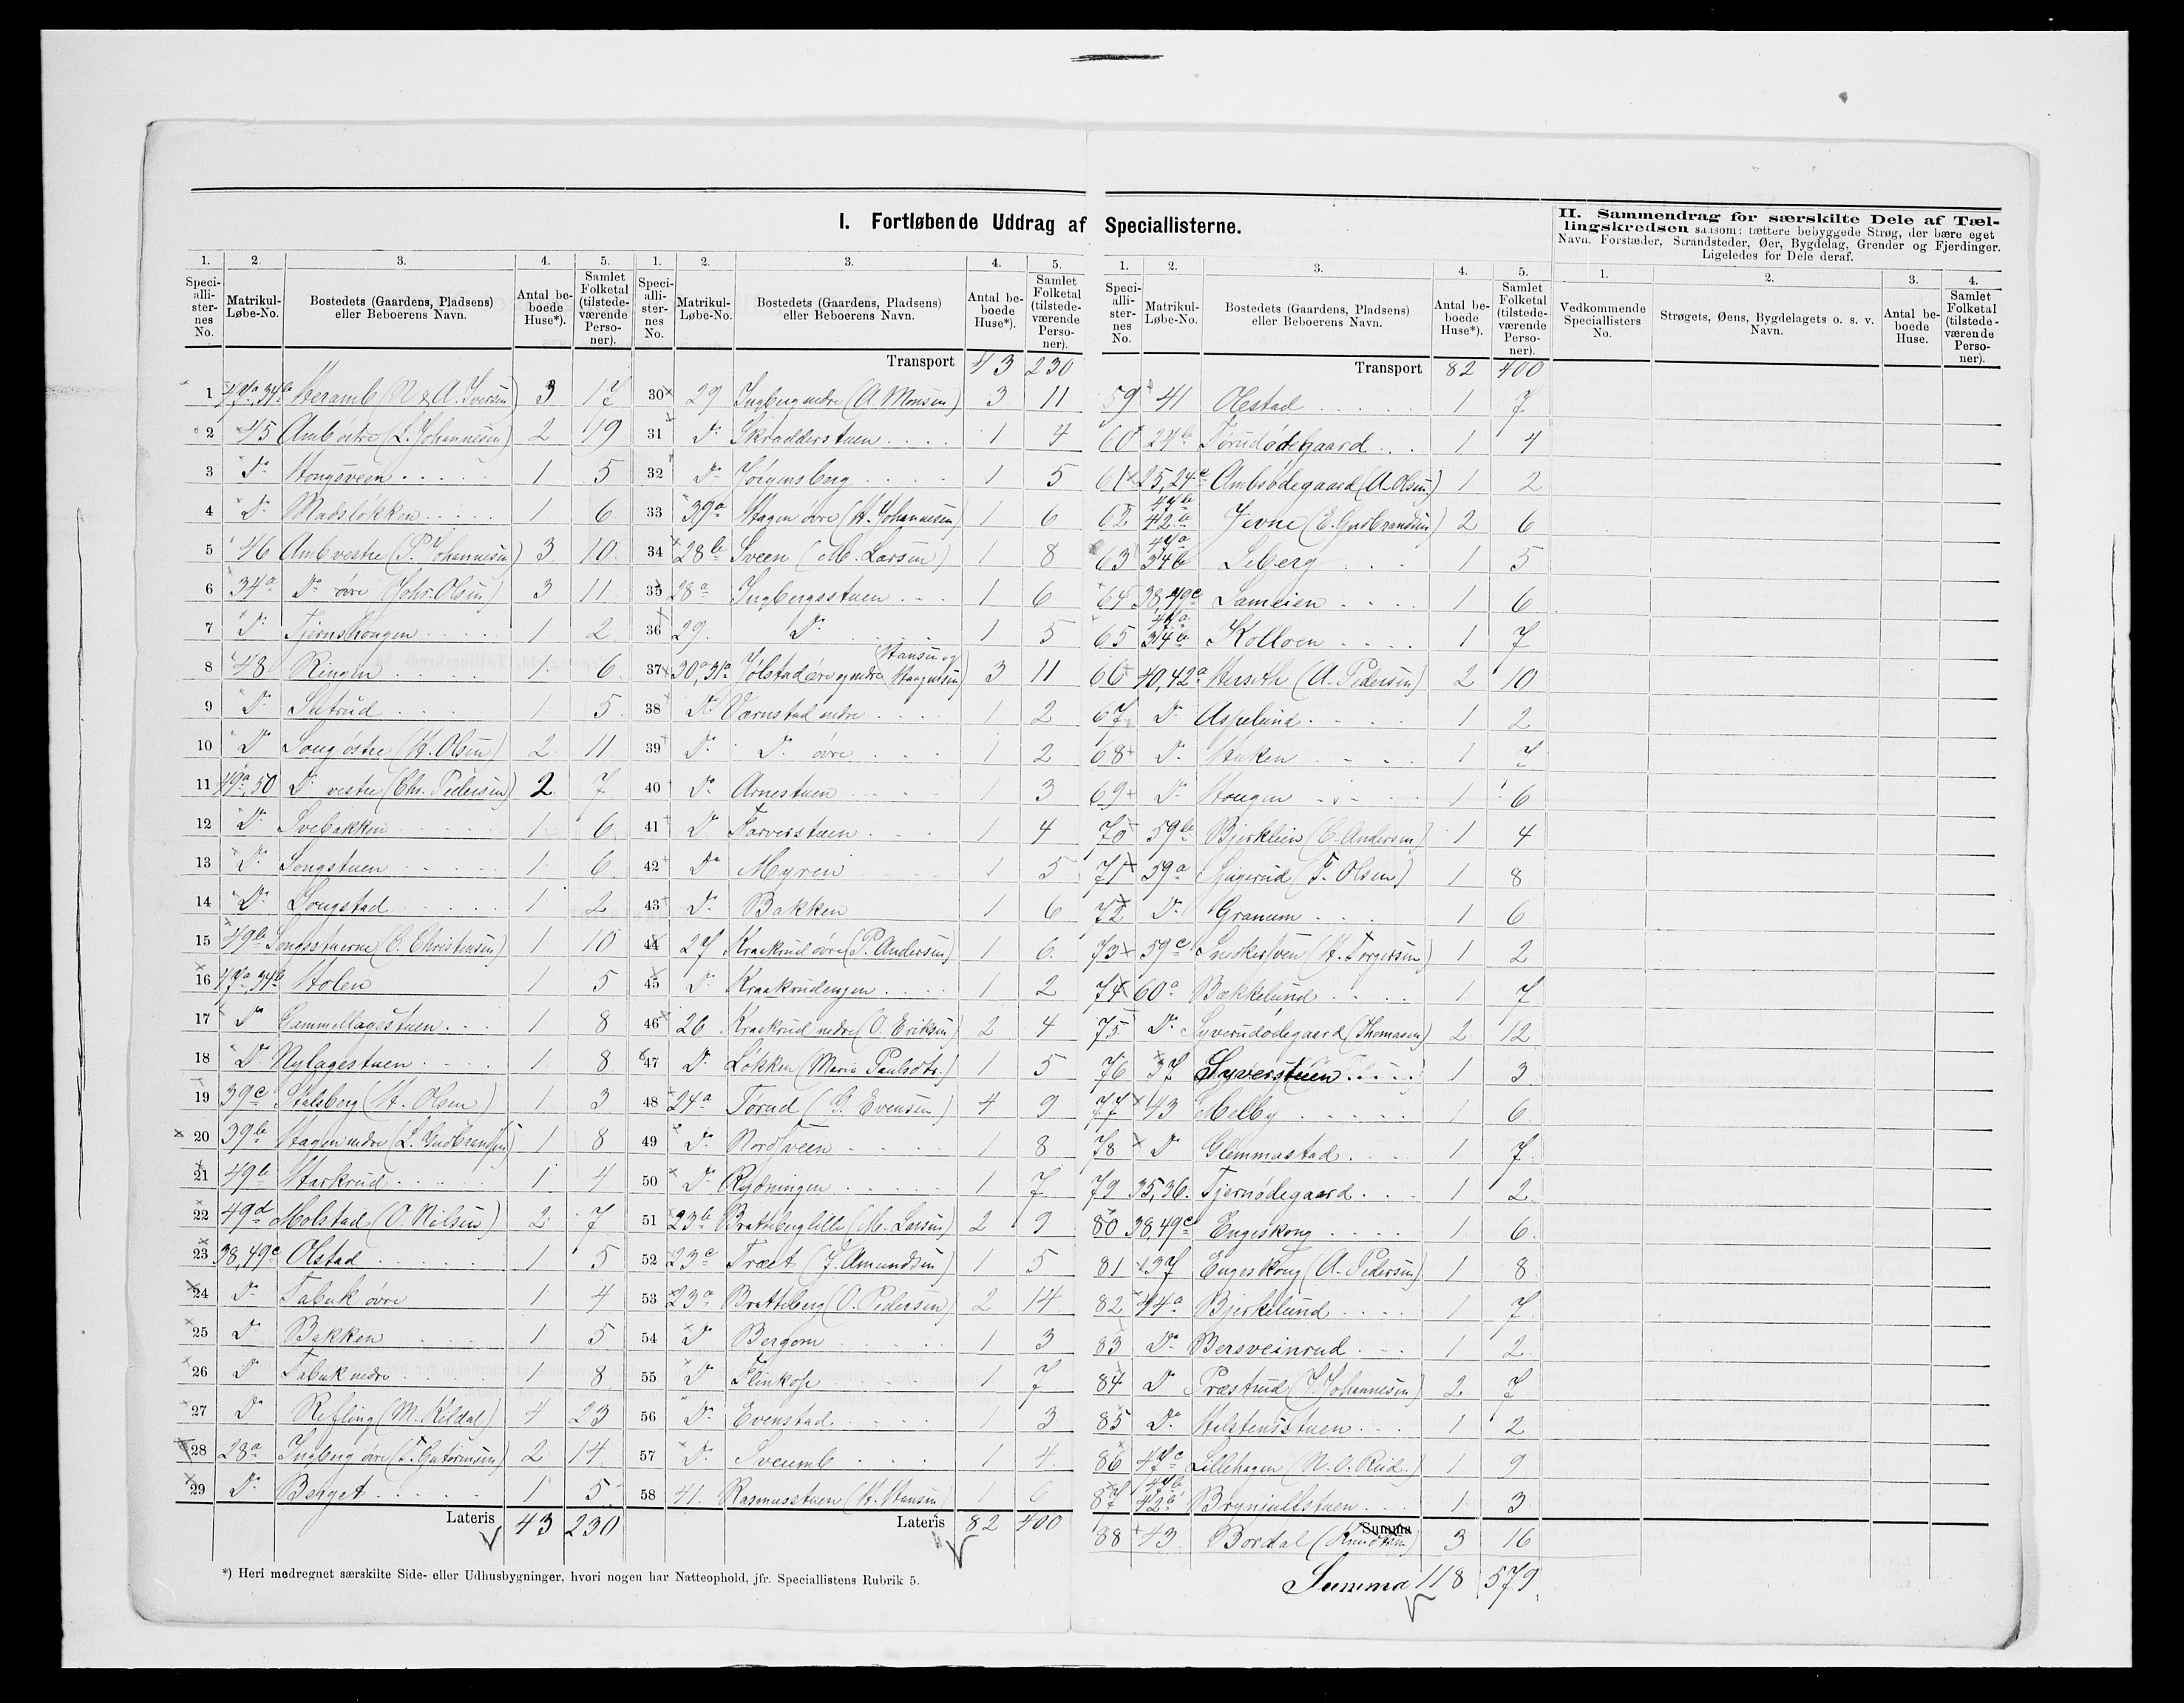 I. Fortløbende Uddrag af Speciallisterne.
1. 2. 3. 4. 5.
Speciallisternes No. Matrikul-Løbe-No. Bostedets (Gaardens, Pladsens) eller Beboerens Navn. Antal beboede Huse*). Samlet Folketal (tilstedeværende Personer).
1 47a, 34b Heramb (N & A. Iversen) 3 17
2 45 Amb østre (L. Johannesen) 2 19
3 Do Hougsveen 1 5
4 Do Madsløkken 1 6
5 46 Amb vestre (P. Johannesen) 3 10
6 34a Do øvre (Johs. Olsen) 3 11
7 Do Tjernshougen 1 2
8 48 Ringen 1 6
9 Do Sletrud 1 5
10 Do Song østre (H. Olsen) 2 11
11 49a, 50 Do vestre (Chr. Pedersen) 2 7
12 Do Svebakken 1 6
13 Do Songstuen 1 6
14 Do Songstad 1 2
15 49b Songsstuerne (O. Christensen) 1 10
16 47a, 34b Holen 1 5
17 Do Gammellagestuen 1 8
18 Do Nylagestuen 1 8
19 39c Stalsberg (H. Olsen) 1 3
20 39b Hagen nedre (L. Gudbrandsen) 1 8
21 49b Starkrud 1 4
22 49d Molstad (O. Nilsen) 2 7
23 38, 49c Olstad 1 5
24 Do Tabuk øvre 1 4
25 Do Bakken 1 5
26 Do Tabuk nedre 1 8
27 Do Refling (M. Kildal) 4 23
28 28a Ingberg øvre (T. Guttormsen) 2 14
29 Do Berget 1 5
Lateris 43 230
1. 2. 3. 4. 5.
Speciallisternes No. Matrikul-Løbe-No. Bostedets (Gaardens, Pladsens) eller Beboerens Navn. Antal beboede Huse*). Samlet Folketal (tilstedeværende Personer).
Transport 43 230
30 29 Ingberg nedre (A. Monsen) 3 11
31 Do Skradderstuen 1 4
32 Do Jørgensberg 1 5
33 39a Hagen øvre (H. Johannesen) 1 6
34 28b Sveen (M. Larsen) 1 8
35 28a Ingbergsstuen 1 6
36 29. Do 1 5
37 30a, 31a Jølstad øvre og nedre (Hansen og Haagensen) 3 11
38 Do Værnstad nedre 1 2
39 Do Do øvre 1 2
40 Do Arnestuen 1 3
41 Do Farverstuen 1 4
42 Do Myren 1 5
43 Do Bakken 1 6
44 27 Kraakrud øvre (P. Andersen) 1 6
45 Do Kraakrudengen 1 2
46 26 Kraakrud nedre (O. Eriksen) 2 4
47 Do Løkken (Maria Paulsdtr.) 1 5
48 24a Tørud (G. Evensen) 4 9
49 Do Nordsveen 1 8
50 Do Rydningen 1 7
51 23b Bratteberg lille (M. Larsen) 2 9
52 23c Træet (J. Amundsen) 1 5
53 23a Bratteberg (O. Pedersen) 2 14
54 Do Bergom 1 3
55 Do Flinkop 1 7
56 Do Evenstad 1 3
57 Do Sveumb 1 4
58 41. Rasmusstuen (H. Hansen) 1 6
Lateris 82 400
1. 2. 3. 4. 5.
Speciallisternes No. Matrikul-Løbe-No. Bostedets (Gaardens, Pladsens) eller Beboerens Navn. Antal beboede Huse*). Samlet Folketal (tilstedeværende Personer).
Transport 82 400
59 41 Olestad 1 7
60 24b Tørudødegaard 1 4
61 25, 24c Ambsødegaard (A. Olsen) 1 2
62 47b 42b Jevne (E. Gudbrandsen) 2 6
63 47a 34b Leberg 1 5
64 38, 49c Sameien 1 6
65 47a 34b Kolloen 1 7
66 40, 42a Herseth (A. Pedersen) 2 10
67 Do Aspelund 1 2
68 Do Haken 1 7
69 Do Hougen 1 6
70 59b Bjerklien (C. Andersen) 1 4
71 59a Hagerud (T. Olsen) 1 8
72 Do Granum 1 6
73 59c Snedkersven (H. Torgersen) 1 2
74 60a Bækkelund 1 7
75 Do Syverudødegaard (Thomasen) 2 12
76 37 Syverstuen 1 3
77 43 Melby 1 6
78 Do Glemmastad 1 7
79 35, 36. Tjernødegaard 1 2
80 38, 49c Engeskong 1 6
81 37 Engeskoug (A. Pedersen) 1 8
82 44a Bjerkelund 1 7
83 Do Bersveinrud 1 2
84 Do Præstrud (J. Johannesen) 2 7
85 Do Helstensstuen 1 2
86 47c Lillehagen (N. O. Rud.) 1 9
87 47b 42b Brynjulfstuen 1 3
88 43 Bordal (Knudsen) 3 16
Summa
Summa 118 579
II. Sammendrag for særskilte Dele af Tællingskredsen saasom: tættere bebyggede Strøg, der bære eget Navn, Forstæder, Strandsteder, Øer, Bygdelag, Grender og Fjerdinger. Ligeledes for Dele deraf.
1. 2. 3. 4.
Vedkommende Speciallisters No. Strøgets, Øens, Bygdelagets o. s. v. Navn. Antal beboede Huse. Samlet Folketal (tilstedeværende Personer).
*) Heri medregnet særskilte Side- eller Udhusbygninger, hvori nogen har Natteophold, jfr. Speciallistens Rubrik 5.